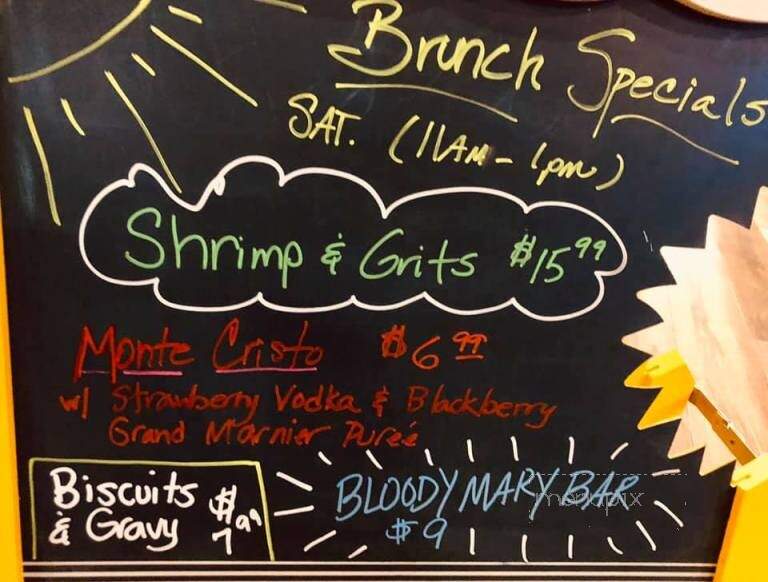 Brunch Specials
SAT. (11AM - 1pm)
Shrimp & Grits $15.99
Monte Cristo $6.99
w/ Strawberry Vodka & Blackberry
Grand Marnier Pureé
Biscuits
& Gravy $7.99
BLOODY MARY BAR
$9
menupix